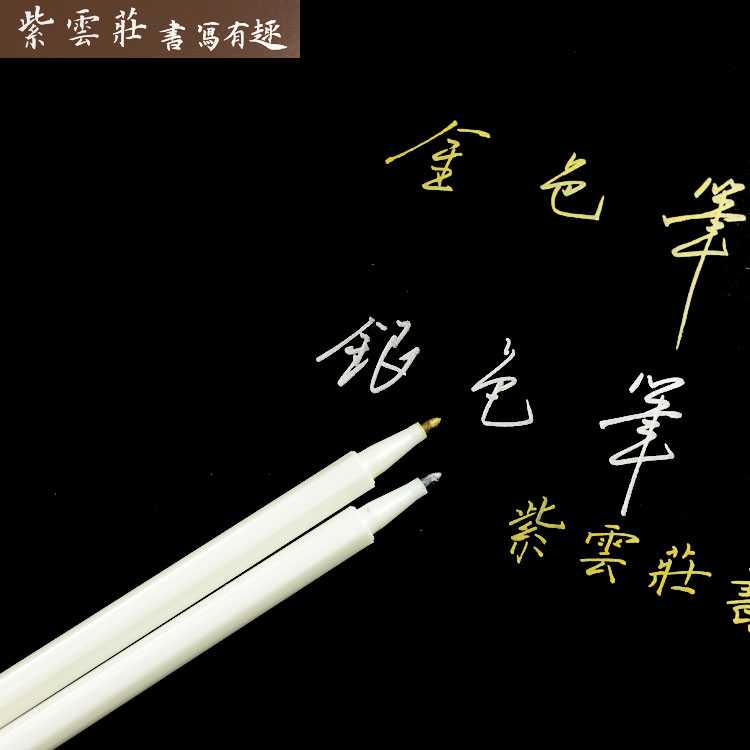 紫雲莊 書寫有趣
金色筆
銀色筆
紫雲莊